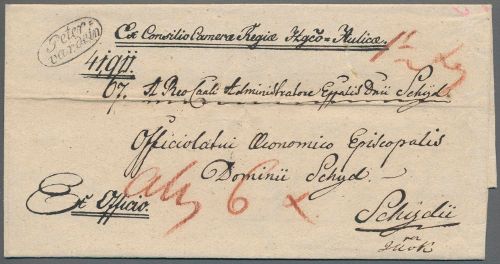 Peter
vardein
Ex Consilio Cameræ Regiæ Hgco = Aulicæ.
41911.
67. A Reo Caali Administratore Eppalis Dnii Schyd.
Officiolatui Œconomico Episcopalis
Dominii Schyd.
Ex Officio.
6 x
Schijdii
per